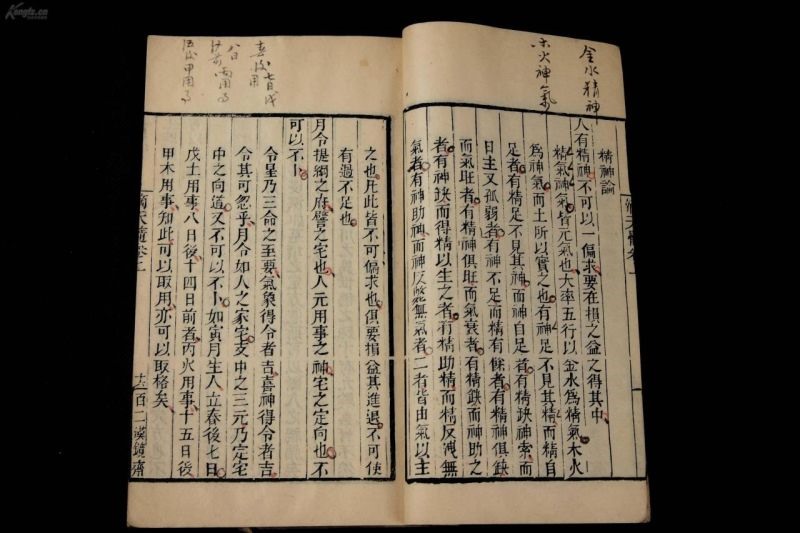 金水精神
木火神氣
精神論
人有精神不可以一偏求要在損之益之得其中
精氣神氣皆元氣也大率五行以金水爲精氣木火
爲神氣而土所以實之也有神足不見其精而精自
足者有精足不見其神而神自足者有精缺神索而
日主又孤弱者有神不足而精有餘者有精神俱缺
而氣旺者有精神俱旺而氣衰者有精缺而神助之
者有神缺而得精以生之者有精助精而精反洩無
氣者有神助神而神反斃無氣者二者皆由氣以主
滴天髓卷一
之也凡此皆不可偏求也俱要損益其進退不可使
有過不足也
月令提綱之府譬之宅也人元用事之神宅之定向也不
可以不卜
令星乃三命之至要氣象得令者吉喜神得令者吉
令其可忽乎月令如人之家宅支中之三元乃定宅
中之向道又不可以不卜如寅月生人立春後七日
戊土用事八日後十四日前者丙火用事十五日後
甲木用事知此可以取用亦可以取格矣
滴天髓卷上
十六
百二漢鏡齋
Kongfz.cn